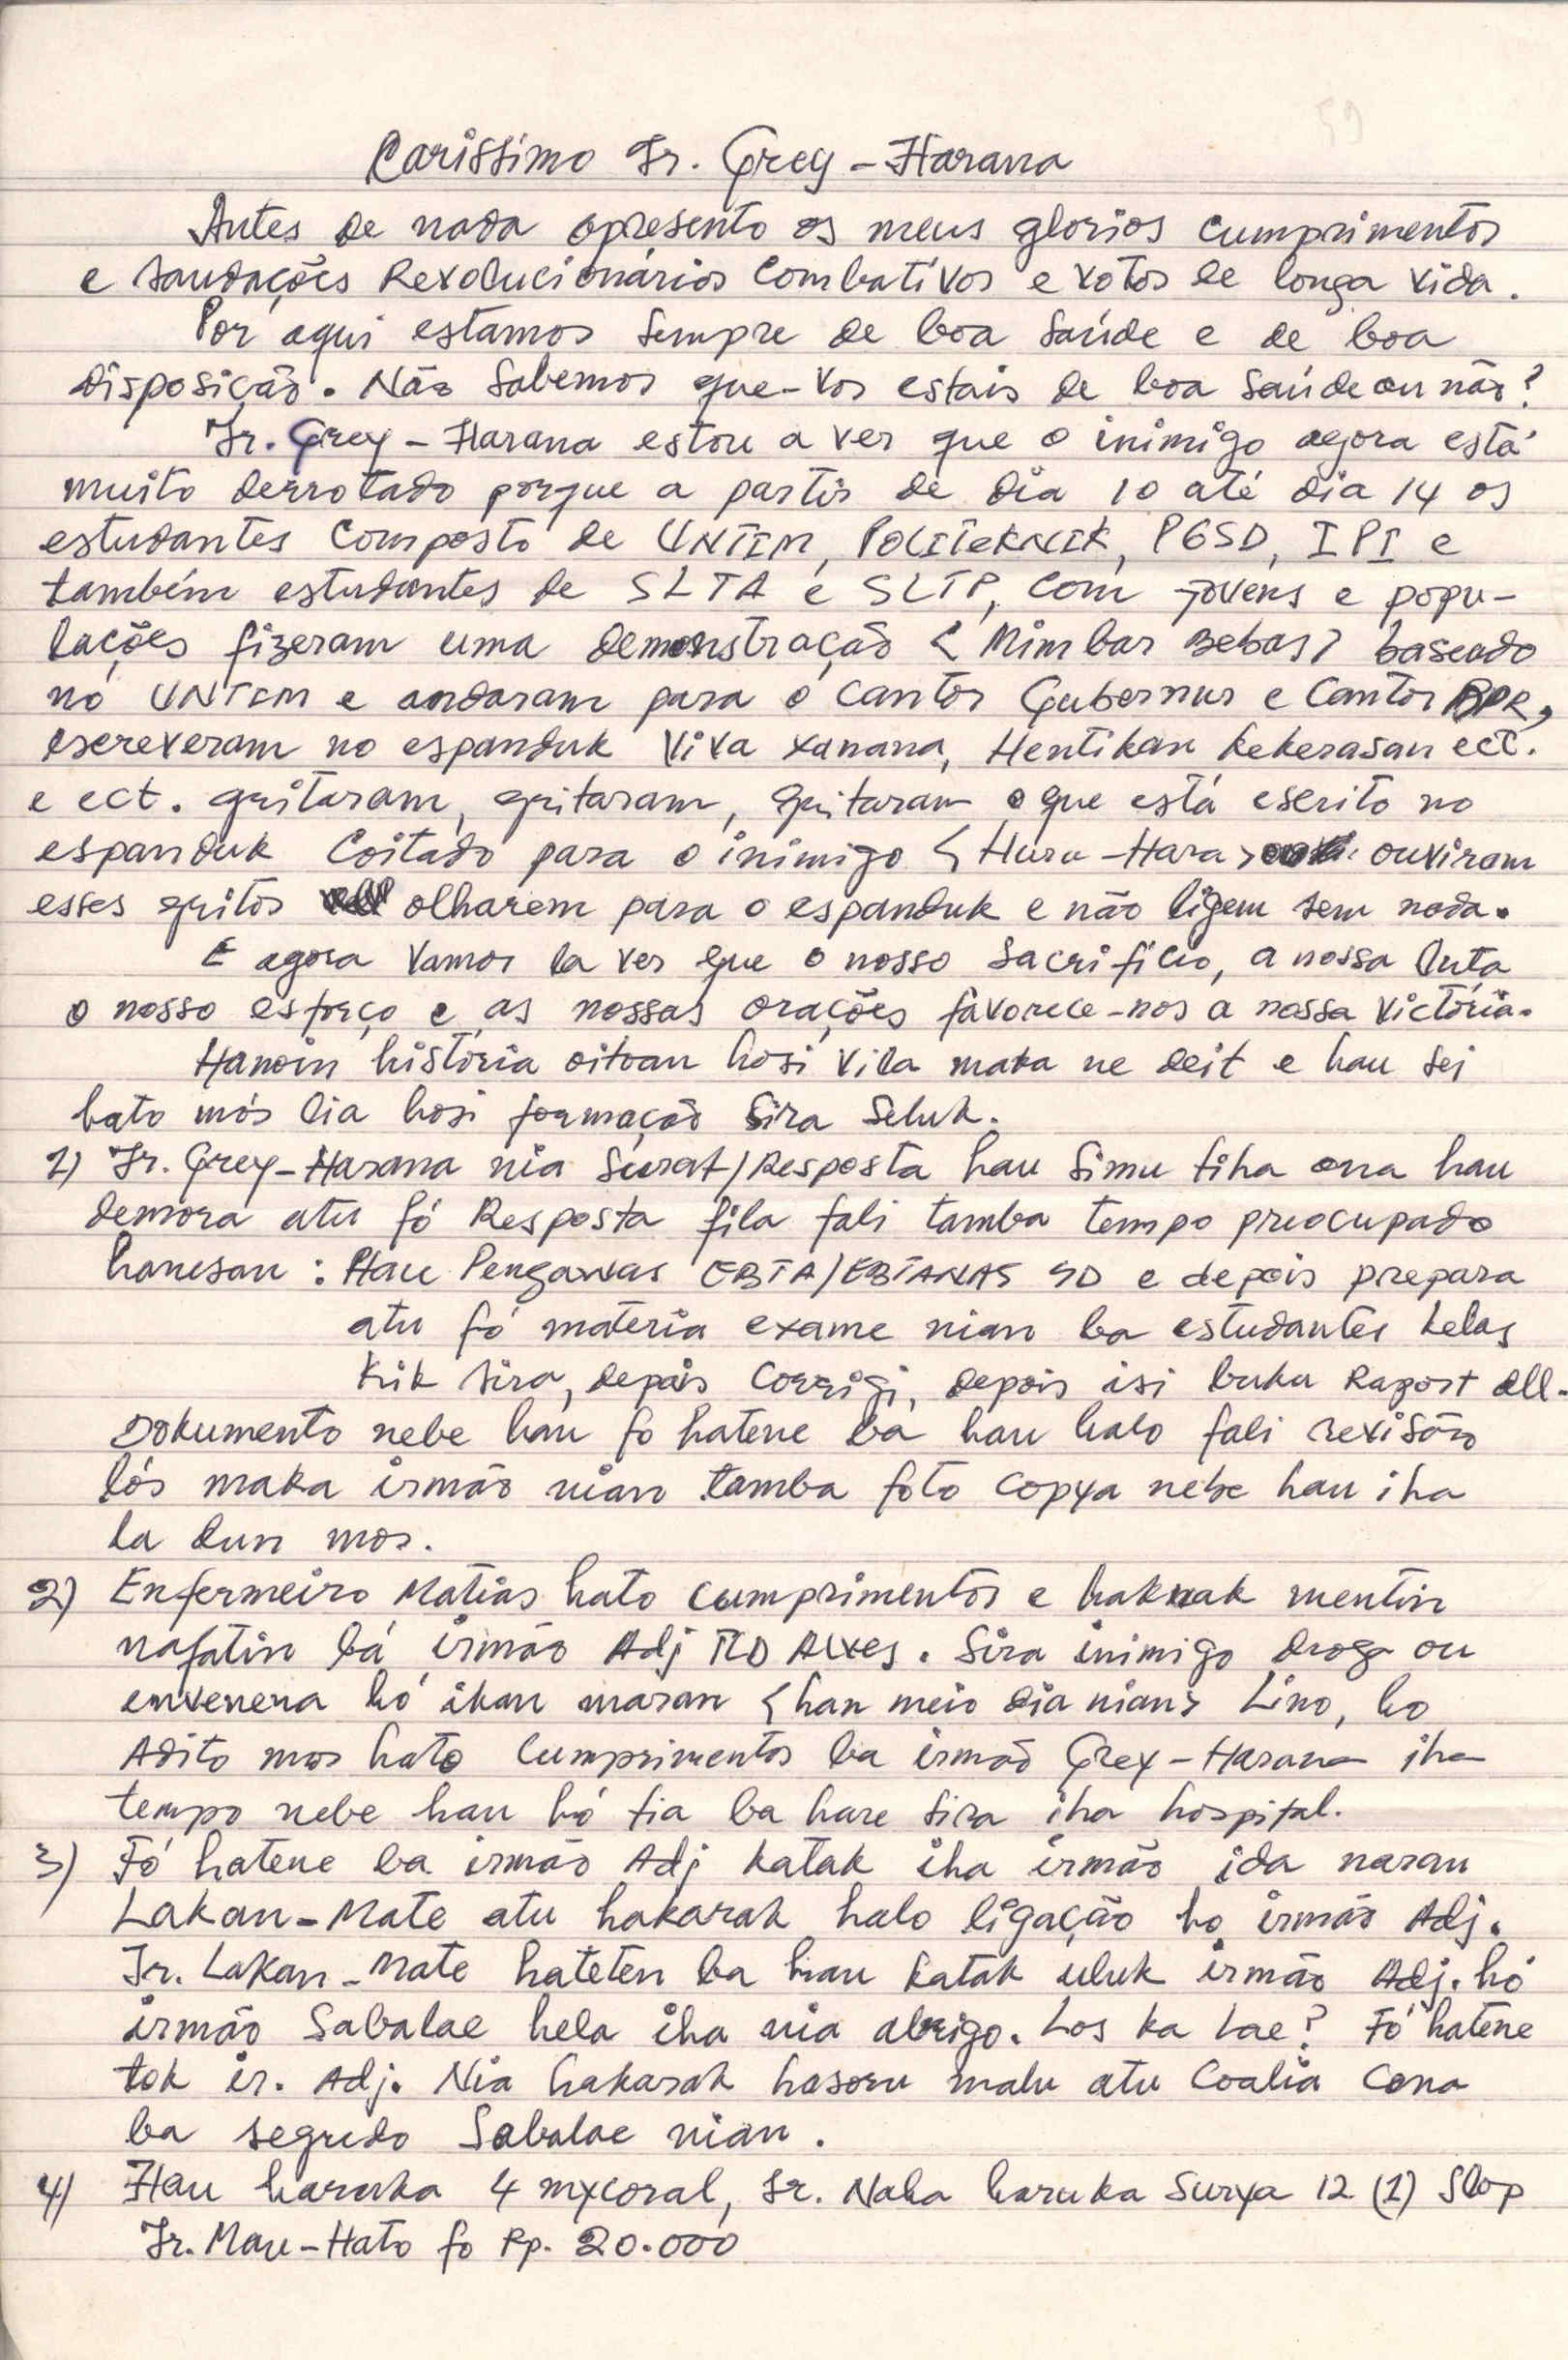 Carissimo Ir. Grey - Harana
Antes de nada apresento os meus glorios cumprimentos
e saudações Revolucionários Combativos e votos de longa vida.
Por aqui estamos sempre de boa saúde e de boa
disposição. Não sabemos que-vos estais de boa saúde ou não?
Ir. Grey - Harana estou a ver que o inimigo agora está
muito derrotado porque a partir de dia 10 até dia 14 os
estudantes composto de UNTIM, POLITEKNIK, PGSD, IPI e
também estudantes de SLTA e SLTP, com jovens e popu-
lações fizeram uma demonstração < Mimbar Bebas > baseado
no UNTIM e andaram para o cantor Gubernur e Cantor DPR,
escreveram no espanduk Viva Xanana, Hentikan kekerasan ect.
e ect. gritaram, gritaram, gritaram o que está escrito no
espanduk Coitado para o inimigo < Huru - Hara > ouviram
esses gritos olharem para o espanduk e não ligem sem nada.
E agora vamos la ver que o nosso sacrifício, a nossa luta
o nosso esforço e as nossas orações favorece-nos a nossa victória.
Hanoin história oitoan hosi vila maka ne deit e hau sei
hato mós lia hosi formação sira seluk.
1) Ir. Grey - Harana nia surat/Resposta hau simu tiha ona hau
demora atu fó Resposta fila fali tamba tempo preocupado
hanesan : Hau Pengawas EBTA/EBTANAS SD e depois prepara
atu fó matéria exame nian ba estudantes kelas
kik sira, depois corrigi, depois isi buku Raport dll.
Dokumento nebe hau fo hatene ba hau halo fali revisão
lós maka irmão nian tamba foto copya nebe hau iha
la dun mos.
2) Enfermeiro Matias hato cumprimentos e haknak mentin
nafatin bá irmão Adj ... Alves. Sira inimigo droga ou
envenena hó ikan maran < han meio dia nian > Lino, ho
Adito mos hato cumprimentos ba irmão Grey - Harana iha
tempo nebe hau hó tia ba hare sira iha hospital.
3) Fó hatene ba irmão Adj katak iha irmão ida naran
Lakan - Mate atu hakarak halo ligação ho irmão Adj.
Ir. Lakan - Mate hateten ba hau katak uluk irmão Adj. hó
irmão Sabalae hela iha nia abrigo. Los ka Lae? Fó hatene
tok ir. Adj. Nia hakarak hasoru malu atu coalia cona
ba segredo Sabalae nian.
4) Hau haruka 4 mycoral, Ir. Naha haruka Surya 12 (1) Slop
Ir. Mau - Hato fo Rp. 20.000